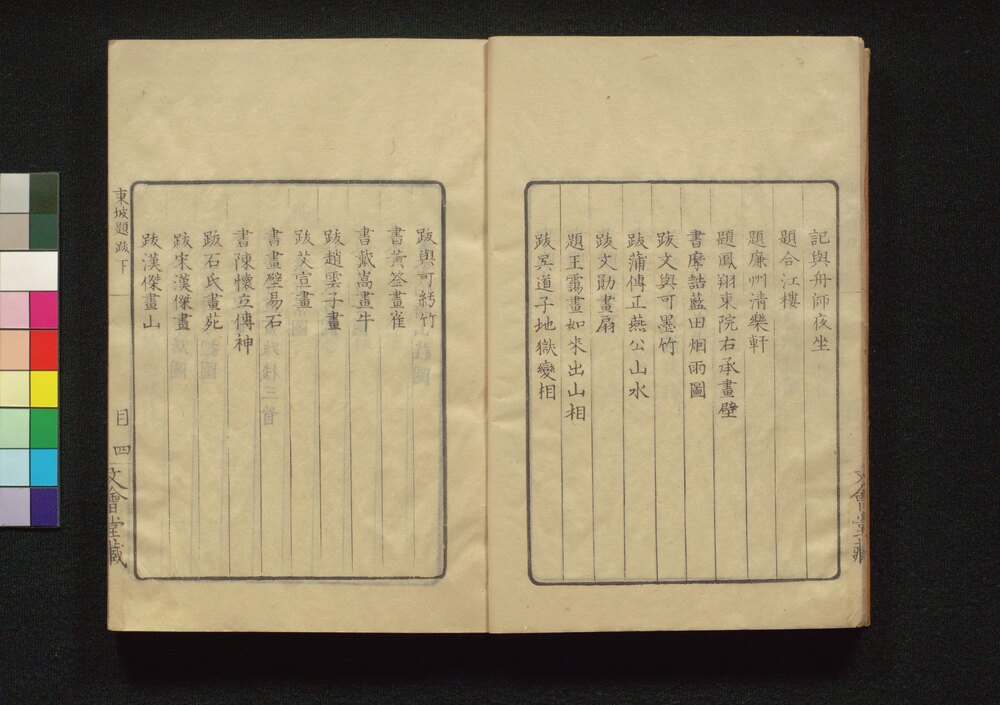 記與舟師夜坐
題合江樓
題廉州清樂軒
題鳳翔東院右丞畫壁
書摩詰藍田烟雨圖
跋文與可墨竹
跋蒲傳正燕公山水
跋文勛畫扇
題王靄畫如來出山相
跋吳道子地獄變相
跋與可紆竹
書黃筌畫雀
書戴嵩畫牛
跋趙雲子畫
跋艾宣畫
書畫壁易石
書陳懷立傳神
跋石氏畫苑
跋宋漢傑畫
跋漢傑畫山
東坡題跋下
目 四
文會堂藏
文會堂藏